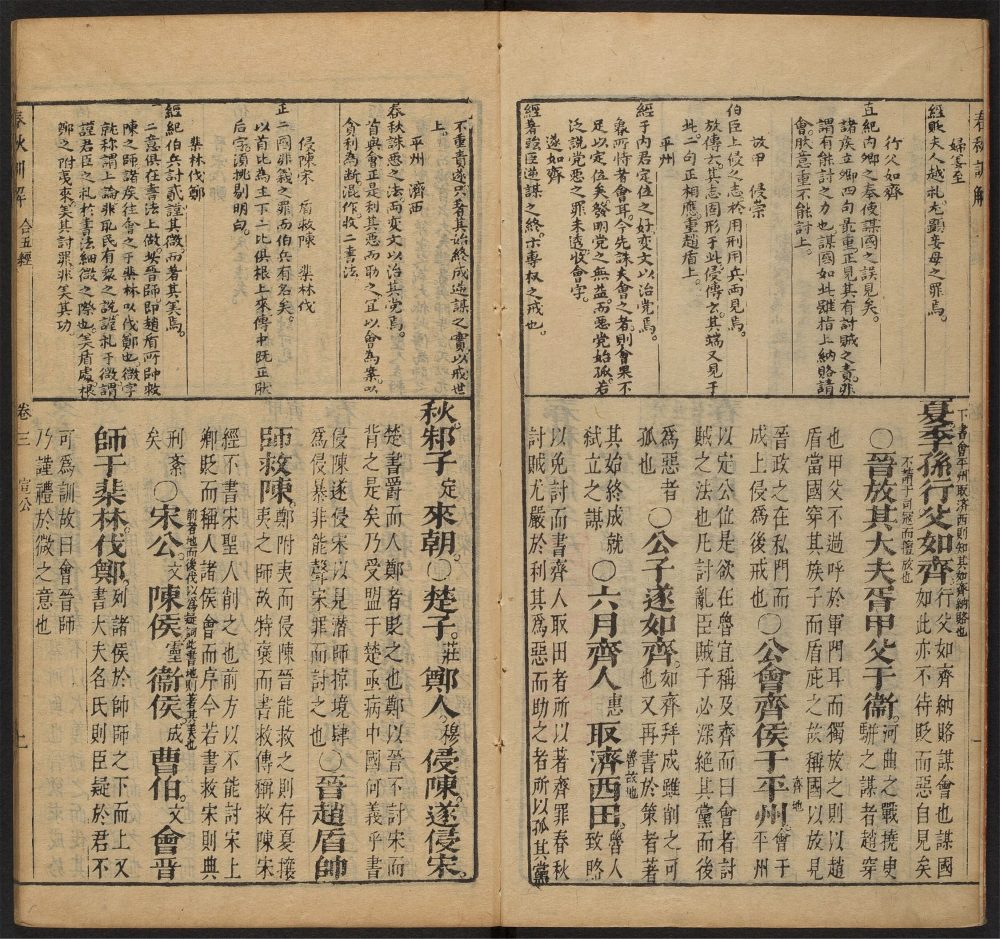 春秋訓解
婦姜至
經貶夫人越礼尤顕妾母之罪焉
行父如齊
直紀内卿之奉使謀國之誤見矣
諸矦立卿四句最重正見其有討賊之責非
謂有能討之力也謀國如此雖指上納賂請
會朕意重不能討上
放甲 侵崇
伯臣上侵之志於用刑用兵而見焉
放傳云其志固形于此侵傳云其端又見于
此二句正相應重趙盾上
平州
經于内君定位之好変文以治党焉
衆所恃者會耳今先誅夫會之者則會果不
足以定位矣發明党之無益而惡党始孤若
泛説党惡之罪未透收會字
遂如齊
經著賊臣逆謀之終示專权之戒也
下書會平州取済西則知其如斉納賂也
夏季孫行父如齊行父如齊納賂謀會也謀國
如此亦不待貶而惡自見矣
不請于司冦而擅放也
○晉放其大夫胥甲父于衞河曲之戰撓臾
駢之謀者趙穿
也甲父不過呼於軍門耳而獨放之則以趙
盾當國穿其族子而盾庇之故稱國以放見
晉政之在私門而
成上侵爲後戒也○公會齊侯于平州齊地會于
平州
以定公位是欲在魯宜稱及齊而曰會者討
賊之法也凡討亂臣賊子必深絶其黨而後
爲惡者
孤也 ○公子遂如齊如齊拜成雖削之可
也又再書於策者著
其始終成就
弑立之謀 ○六月齊人惠取濟西田魯故地魯人
致賂
以免討而書齊人取田者所以著齊罪春秋
討賊尤嚴於利其爲惡而助之者所以孤其黨
不重責遂只著其始終成逆謀之實以戒世
上
平州 濟西
春秋誅惡之法而変文以治其党焉
首與會正是利其惡而取之宜以會為案以
貪利為斷混作收二書法
侵陳宋 盾救陳 棐林伐
正二國非義之罪而伯兵有名矣
以首比為主下二比俱根上來傳中既正朕
后字須挑剔明白
棐林伐鄭
經紀伯兵討貳謹其微而著其美焉
二意俱在書法上做然晉師即趙盾所帥救
陳之師諸矦往會之于棐林以伐鄭也微字
就称謂上論非取民有衆之説謹礼于微謂
謹君臣之礼於書法細微之際也美盾處根
鄭之附夷來美其討罪非美其功
秋邾子定來朝○楚子莊鄭人穆侵陳遂侵宋
楚書爵而人鄭者貶之也鄭以晉不討宋而
背之是矣乃受盟于楚亟病中國何義乎書
侵陳遂侵宋以見潜師掠境肆
爲侵暴非能聲宋罪而討之也○晉趙盾帥
師救陳鄭附夷而侵陳晉能救之則存夏攘
夷之師故特褒而書救傳稱救陳宋
經不書宋聖人削之也前方以不能討宋上
卿貶而稱人諸侯會而序今若書救宋則典
刑紊
矣 前者地而後伐以爲疑詞此書地則著其美也
○宋公文陳侯靈衞侯成曹伯文會晋
師于棐林伐鄭列諸侯於師師之下而上又
書大夫名氏則臣疑於君不
可爲訓故曰會晉師
乃謹禮於微之意也
春秋訓解 合五經
卷三 宣公
上